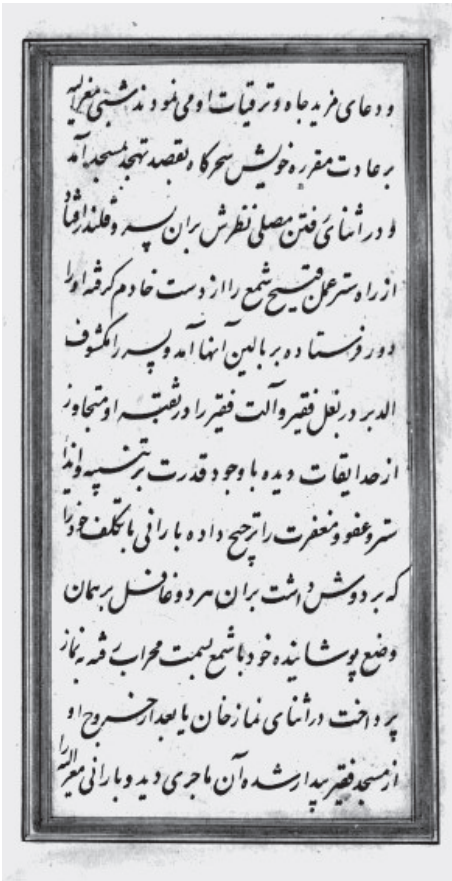 و دعای مزید جاه و ترقیات او می نمودند شبی مغرالیه
بر عادت مقرره خویش سحرکاه بقصد تهجد بمسجد آمد
و در اثنای رفتن مصلی نظرش بران پسر و قلندر افتاد
از راه ستر عمل قبیح شمع را از دست خادم کرفته او را
دور فرستاده بر بالین آنها آمد و پسر را مکشوف
الدبر در بغل فقیر و آلت فقیر را در ثقبه او متجاوز
از حد ایقات دیده با وجود قدرت بر تنبیه و ایذا
ستر و عفو و مغفرت را ترجیح داده بارانی با تکلف خود را
که بر دوش داشت بران هر دو غافل بر همان
وضع پوشانیده خود با شمع بسمت محراب رفته به نماز
پرداخت در اثنای نماز خان یا بعد از خروج او
از مسجد فقیر بیدار شده آن ماجری دید و بارانی مغرالیه را